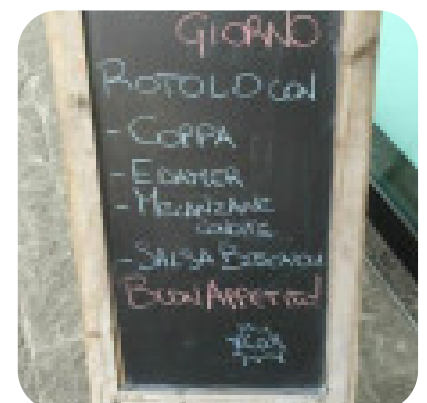 GIORNO
ROTOLO CON
- COPPA
- EDAMER
- MELANZANE
- SALSA
BUON APPETITO!